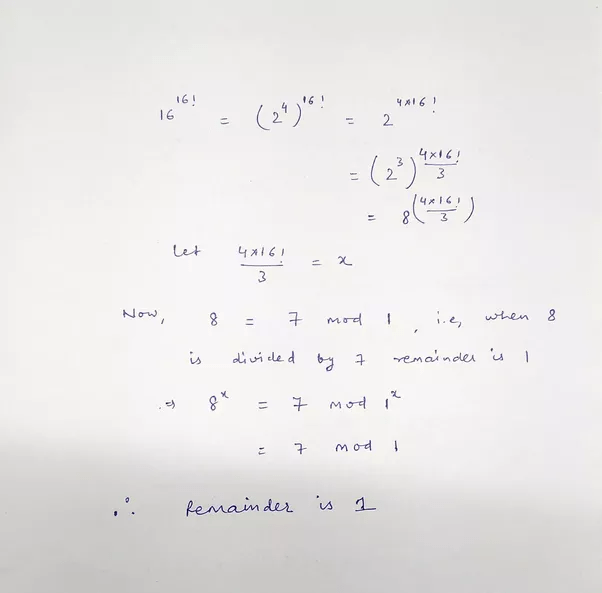 16^16! = (2^4)^16! = 2^4×16!
= (2^3)^4×16!/3
= 8^(4×16!/3)
Let 4×16!/3 = x
Now, 8 = 7 mod 1, i.e, when 8
is divided by 7 remainder is 1
⇒ 8^x = 7 mod 1^x
= 7 mod 1
∴ Remainder is 1